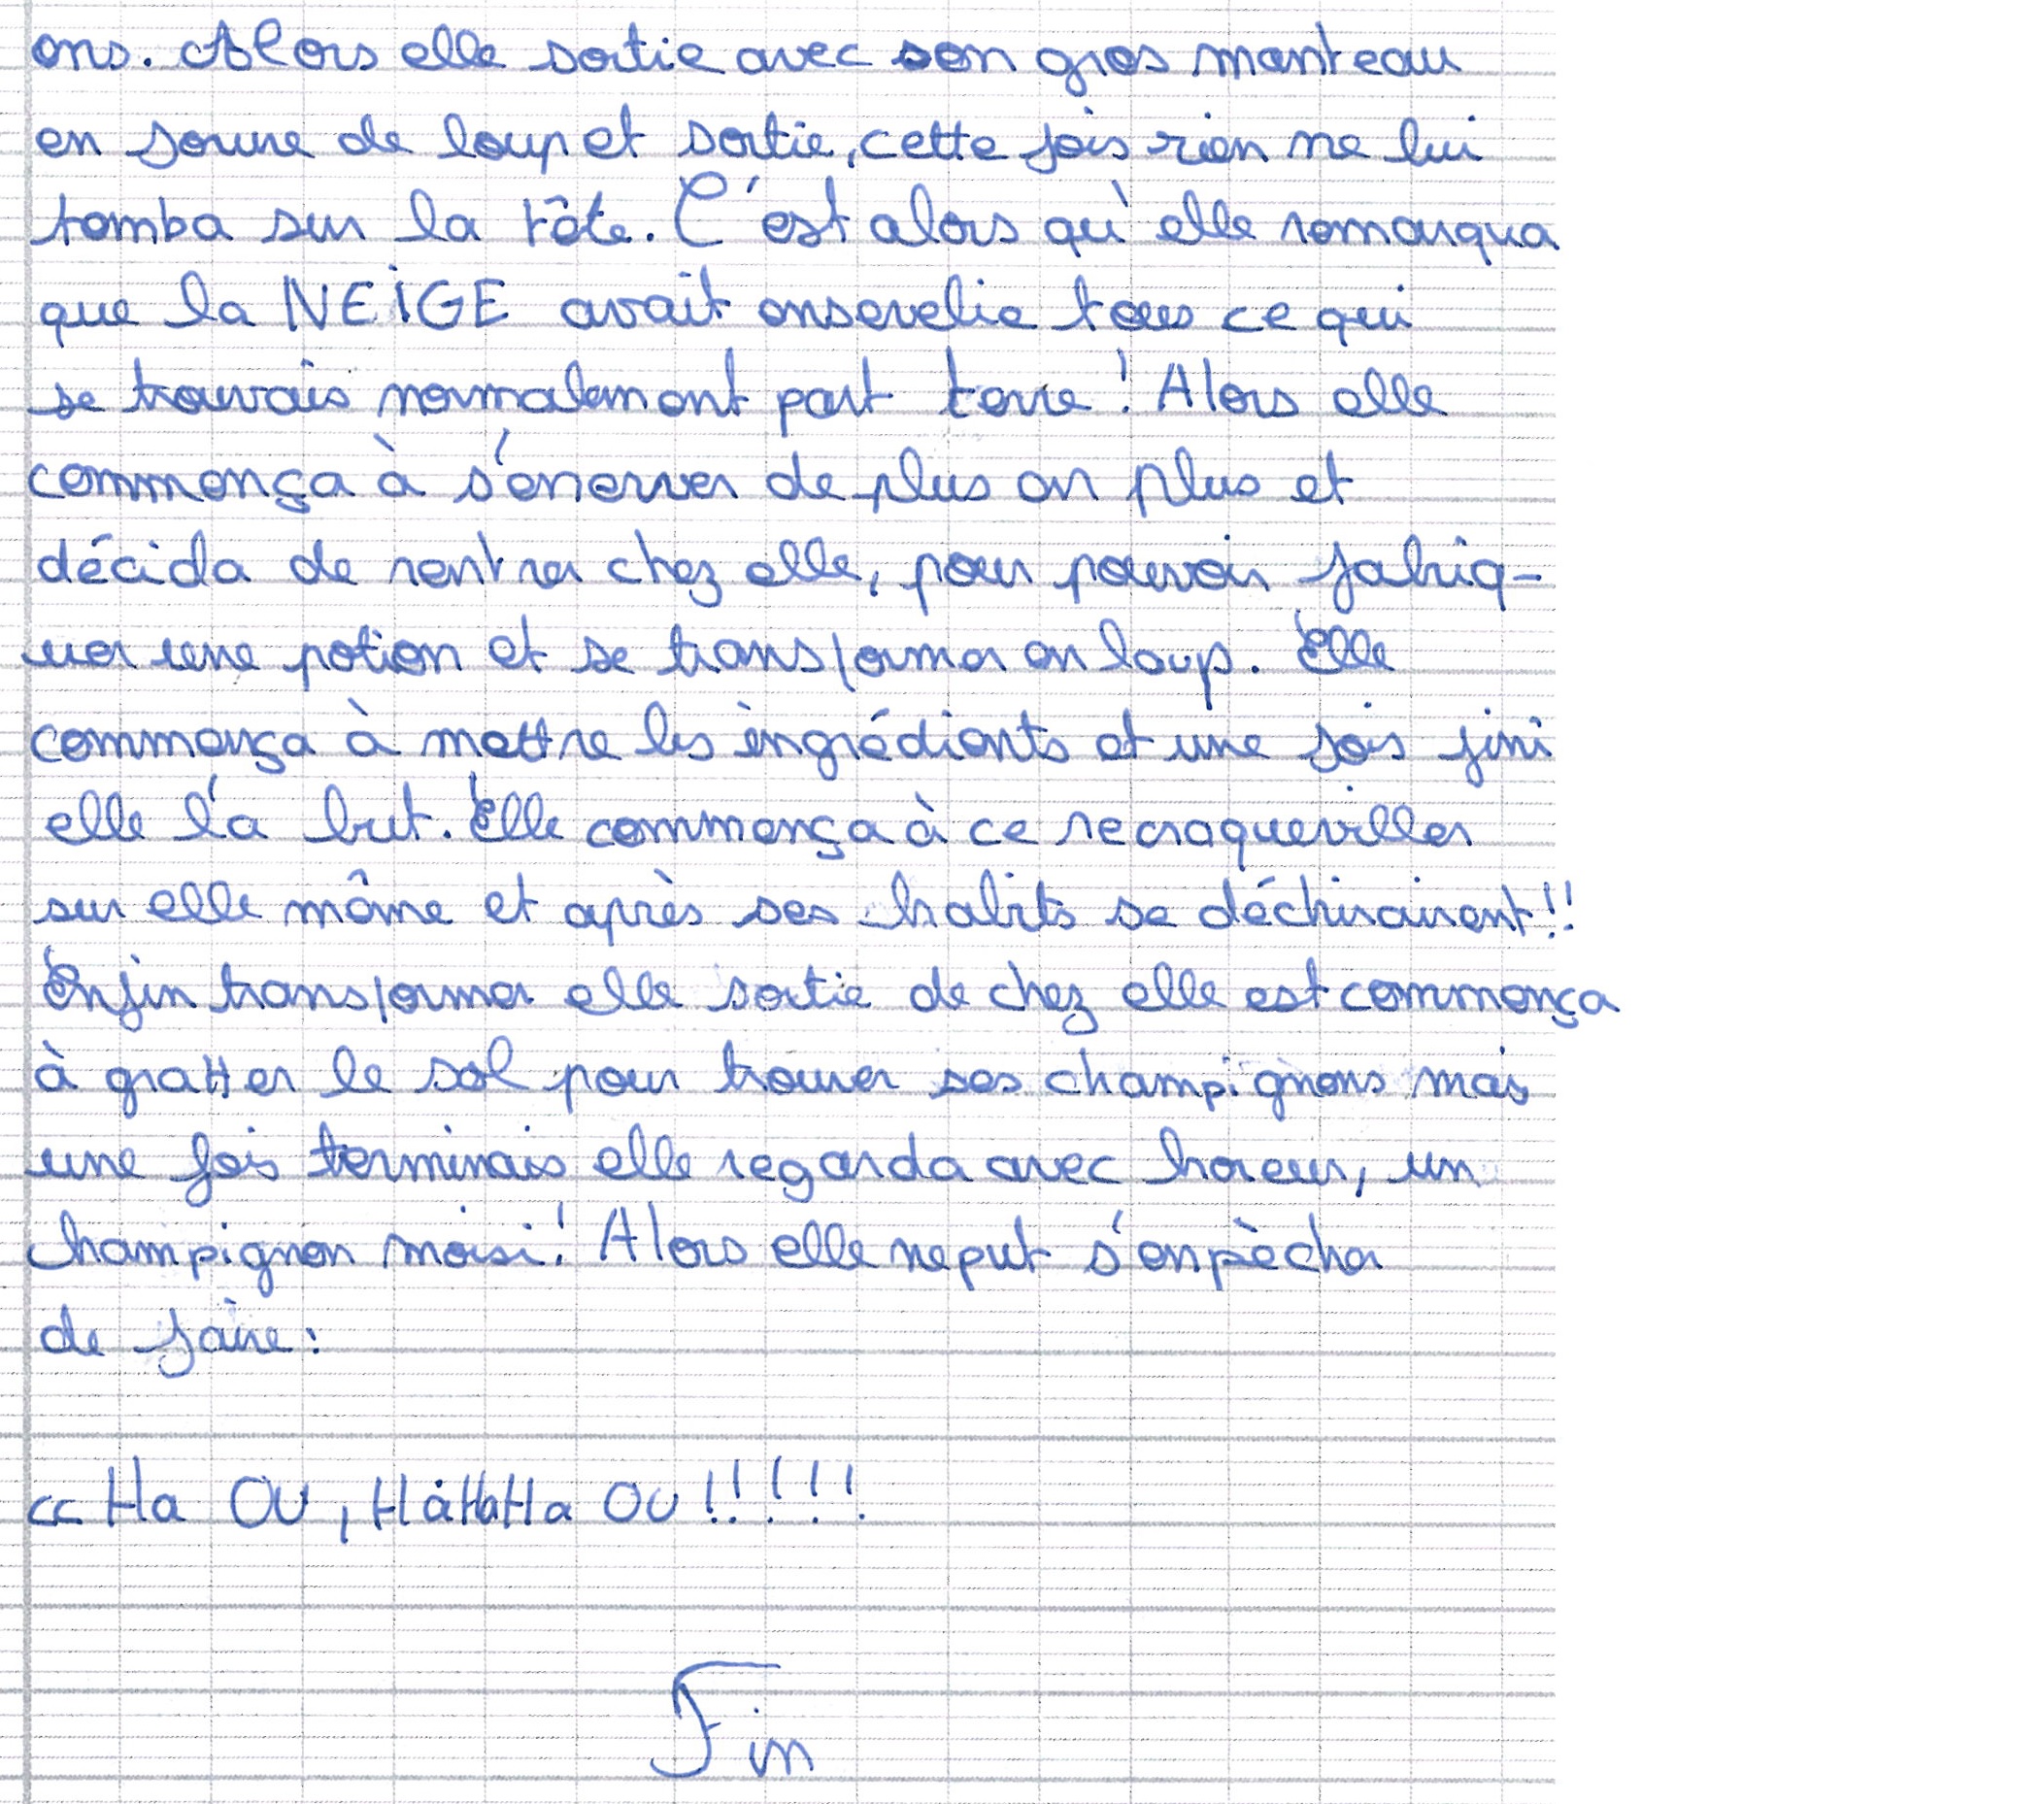 ons. Alors elle sortie avec son gros manteau
en fourure de loup et sortie, cette fois rien ne lui
tomba sur la tête. C'est alors qu'elle remarqua
que la NEIGE avait ensevelie tous ce qui
se trouvais normalement part terre ! Alors elle
commença à s'énerver de plus en plus et
décida de rentrer chez elle, pour pouvoir fabriq-
uer une potion et se transformer en loup. Elle
commença à mettre les ingrédients et une fois fini
elle l'a but. Elle commença à ce recraqueviller
sur elle même et après ses habits se déchiraient !!
Enfin transformer elle sortie de chez elle est commença
à gratter le sol pour trouver ses champignons mais
une fois terminais elle regarda avec horeur, un
champignon moisi ! Alors elle ne put s'enpècher
de faire :
<< Ha OU, HaHaHa OU !!!!!
Fin